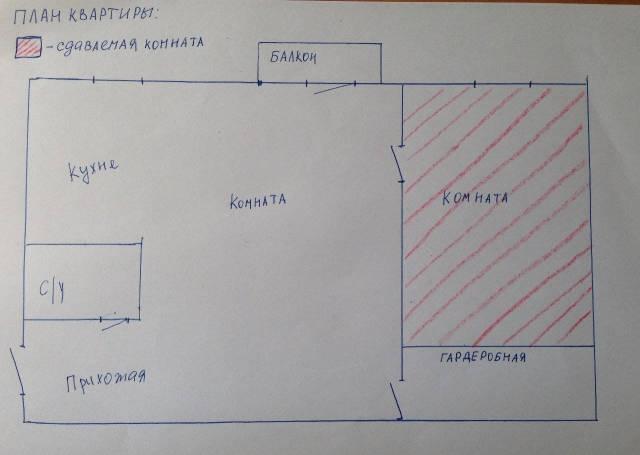 ПЛАН КВАРТИРЫ:
- СДАВАЕМАЯ КОМНАТА
БАЛКОН
Кухне
КОМНАТА
КОМНАТА
С/У
ГАРДЕРОБНАЯ
Прихожая